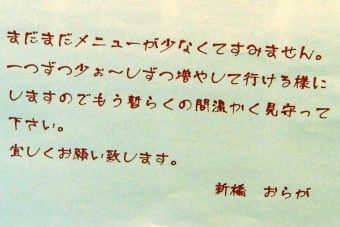 まだまだメニューが少なくてすみません。
一つずつ少ぉ～しずつ増やして行ける様に
しますのでもう暫らくの間温かく見守って
下さい。
宜しくお願い致します。
新橋 おらが